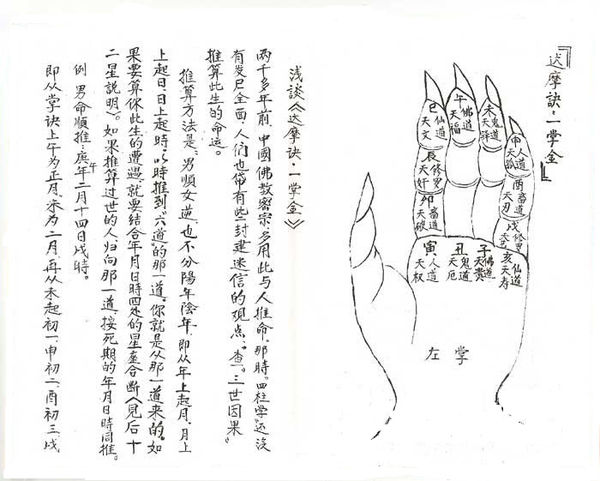 『达摩訣·一掌金』
巳仙道天文
午佛道天福
未鬼道天驿
申人道天孤
辰修罗天奸
酉畜道天刃
卯畜道天破
戌修罗天艺
寅人道天权
丑鬼道天厄
子佛道天贵
亥仙道天寿
左掌
浅谈《达摩訣·一掌金》
两千多年前,中國佛教密宗,多用此与人推命。那時。四柱学还没
有发尸全面,人们也带有些封建迷信的观点,“查”。三世因果”
推算此生的命运。
推算方法是:男順女逆,也不分陽年陰年,即从年上起月,月上
上起日,日上起時,以時推到“六道”的那一道,你就是从那一道来的。如
果要算你此生的遭遇,就要結合年月日時四处的星座合断(見后十
二星説明)。如果推算过世的人归向那一道,按死期的年月日時同推。
例 男命順推:庚午年二月十四日戌時。
即从掌訣上午为正月,未为二月,再从未起初一,申初二,酉初三,戌